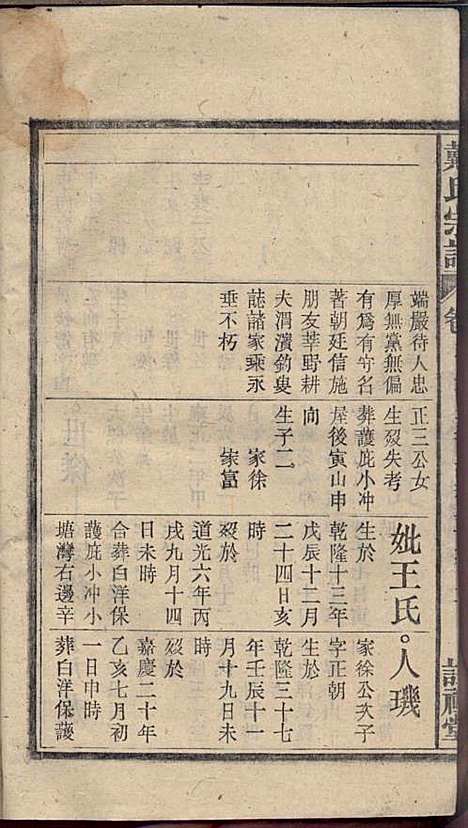 戴氏宗譜
卷
詩禮堂
端嚴待人忠
厚無黨無偏
有爲有守名
著朝廷信施
朋友莘野耕
夫渭濱釣叟
誌諸家乘永
垂不朽
正三公女
生歿失考
葬護庇小冲
屋後寅山申
向
生子二
家徐
家富
妣王氏
生於
乾隆十三年
戊辰十二月
二十四日亥
時
歿於
道光六年丙
戌九月十四
日未時
合葬白洋保
護庇小冲小
塘灣右邊辛
人璣
家徐公次子
字正朝
生於
乾隆三十七
年壬辰十一
月十九日未
時
歿於
嘉慶二十年
乙亥七月初
一日申時
葬白洋保護